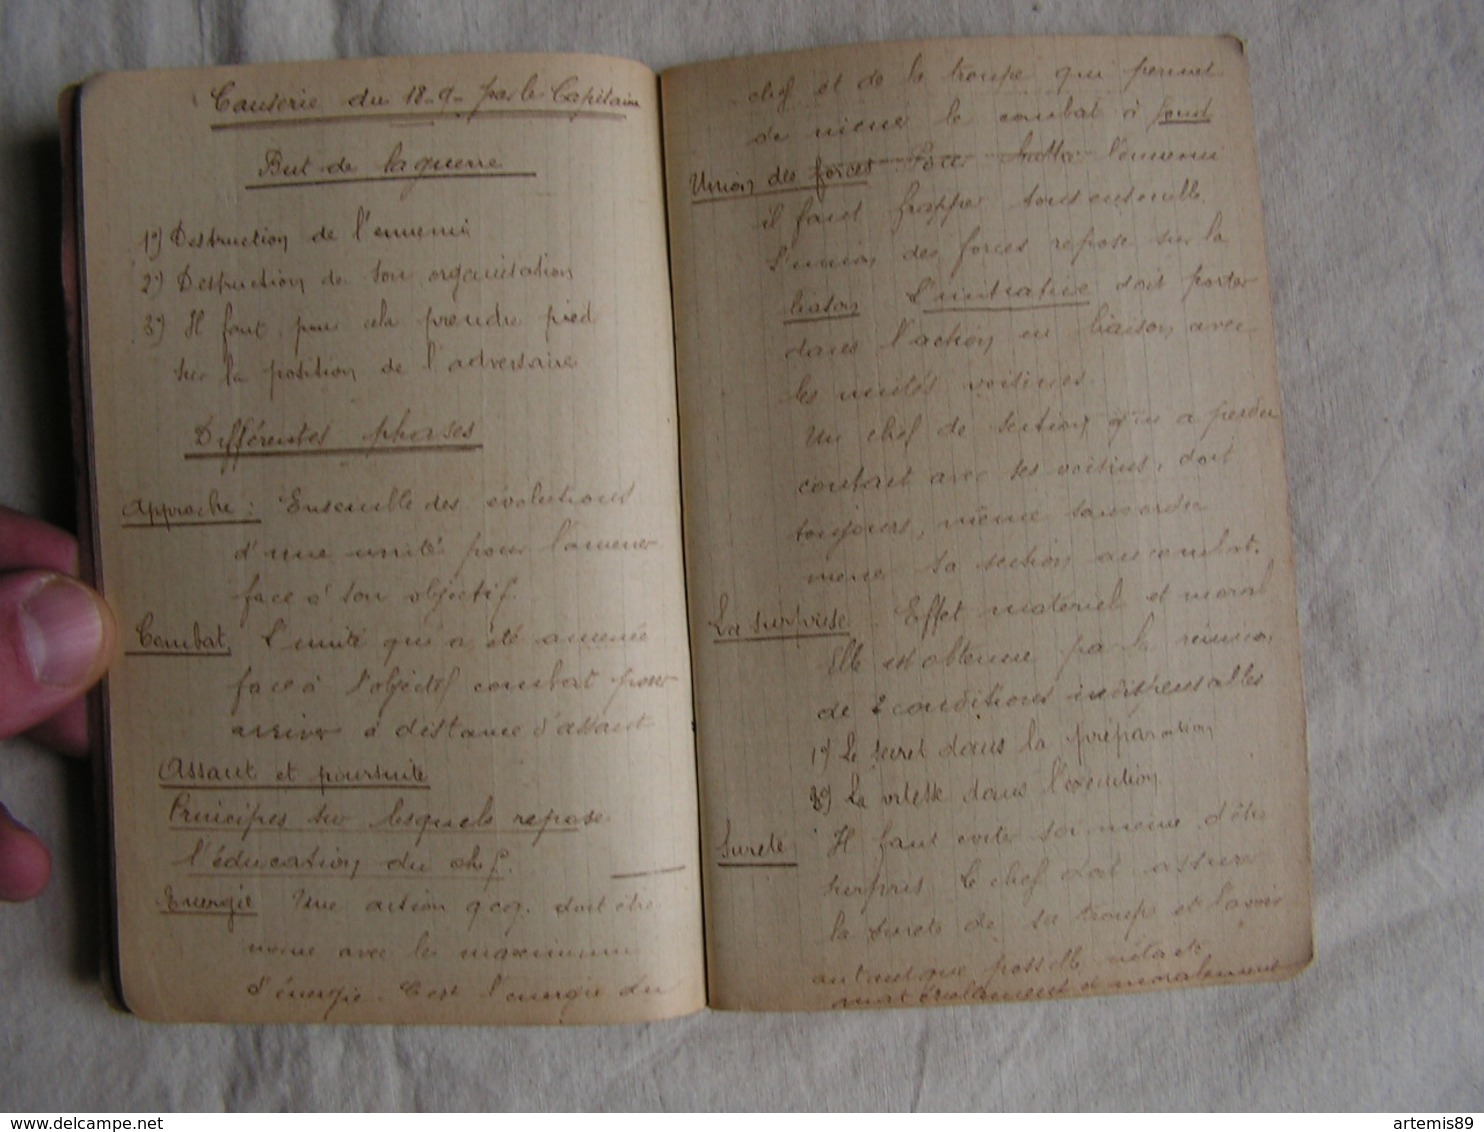 Causerie du 18-9- par le Capitaine
But de la guerre
1°) Destruction de l'ennemi
2°) Destruction de son organisation
3°) Il faut pour cela prendre pied
sur la position de l'adversaire
Différentes phases
Approche : Ensemble des évolutions
d'une unité pour l'amener
face à son objectif.
Combat. L'unité qui a été amenée
face à l'objectif combat pour
arriver à distance d'assaut
Assaut et poursuite
Principes sur lesquels repose
l'éducation du chef.
Energie Une action qcq. doit être
menée avec le maximum
d'énergie. C'est l'énergie du
chef et de la troupe qui permet
de mener le combat à fond
Union des forces Pour battre l'ennemi
il faut frapper tous ensemble.
L'union des forces repose sur la
liaison L'initiative doit porter
dans l'action en liaison avec
les unités voisines.
Un chef de section qui a perdu
contact avec ses voisins, doit
toujours, même sans ordre
mener sa section au combat.
La surprise Effet matériel et moral
Elle est obtenue par la réunion
de 2 conditions indispensables
1°) Le secret dans la préparation
2°) La vitesse dans l'exécution.
Sureté Il faut eviter soi meme d'être
surpris le chef doit assurer
la sureté de sa troupe et l'avoir
autant que possible intacte
matériellement et moralement
artemis89